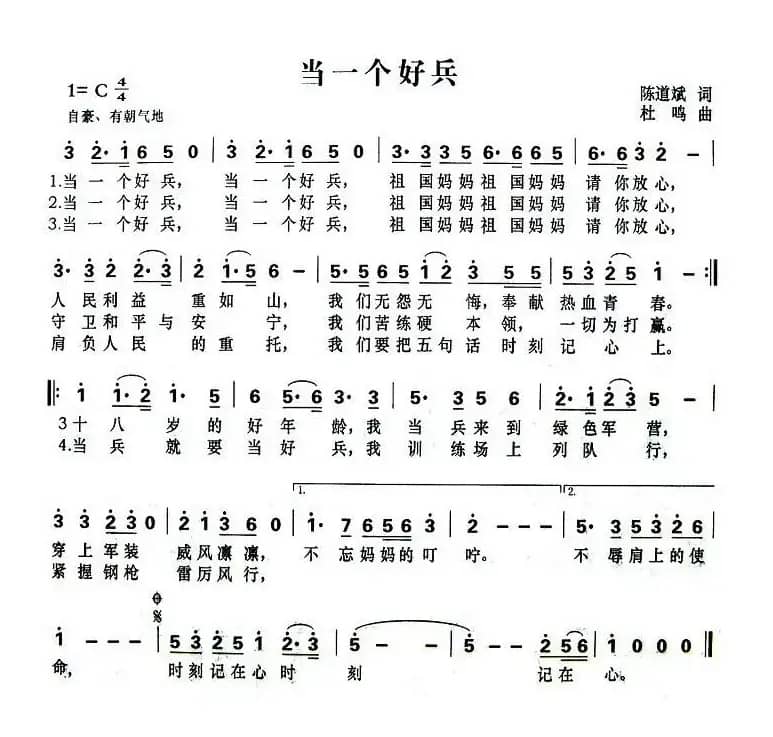 当一个好兵
1= C 4/4
陈道斌 词
自豪、有朝气地
杜 鸣 曲
3 2· 1 6 5 0 | 3 2· 1 6 5 0 | 3· 3 3 5 6· 6 6 5 | 6· 6 3 2 – |
1.当 一 个好 兵, 当 一 个好 兵, 祖 国妈妈祖 国妈妈 请 你放心,
2.当 一 个好 兵, 当 一 个好 兵, 祖 国妈妈祖 国妈妈 请 你放心,
3.当 一 个好 兵, 当 一 个好 兵, 祖 国妈妈祖 国妈妈 请 你放心,
3· 3 2 2·3 | 2 1·5 6 – | 5· 5 6 5 1 2 3 5 5 | 5 3 2 5 1 – :‖
人 民利 益 重如 山, 我 们无怨无 悔,奉献 热血青 春。
守 卫和 平与 安 宁, 我 们苦练硬 本 领, 一切为打 赢。
肩 负人 民 的 重 托, 我 们要把五 句话 时刻 记 心 上。
‖: 1 1·2 1· 5 | 6 5 5 6 3· 3 | 5 3 5 6 | 2· 1 2 3 5 – |
3十 八 岁 的 好 年 龄,我 当 兵来 到 绿 色军 营,
4.当 兵 就 要 当 好 兵,我 训 练场 上 列 队 行,
1. 2.
3 3 2 3 0 | 2 1 3 6 0 | 1· 7 6 5 6 3 | 2 – – – :‖ 5· 3 5 3 2 6 |
穿 上 军装 威风 凛 凛, 不 忘妈妈的 叮 咛。 不 辱肩上的 使
紧 握 钢枪 雷厉 风 行,
1 – – – | 5 3 2 5 1 2· 3 | 5 – – – | 5 – – 2 5 6 | 1 0 0 0 ‖
命, 时刻记在 心 时 刻 记在 心。